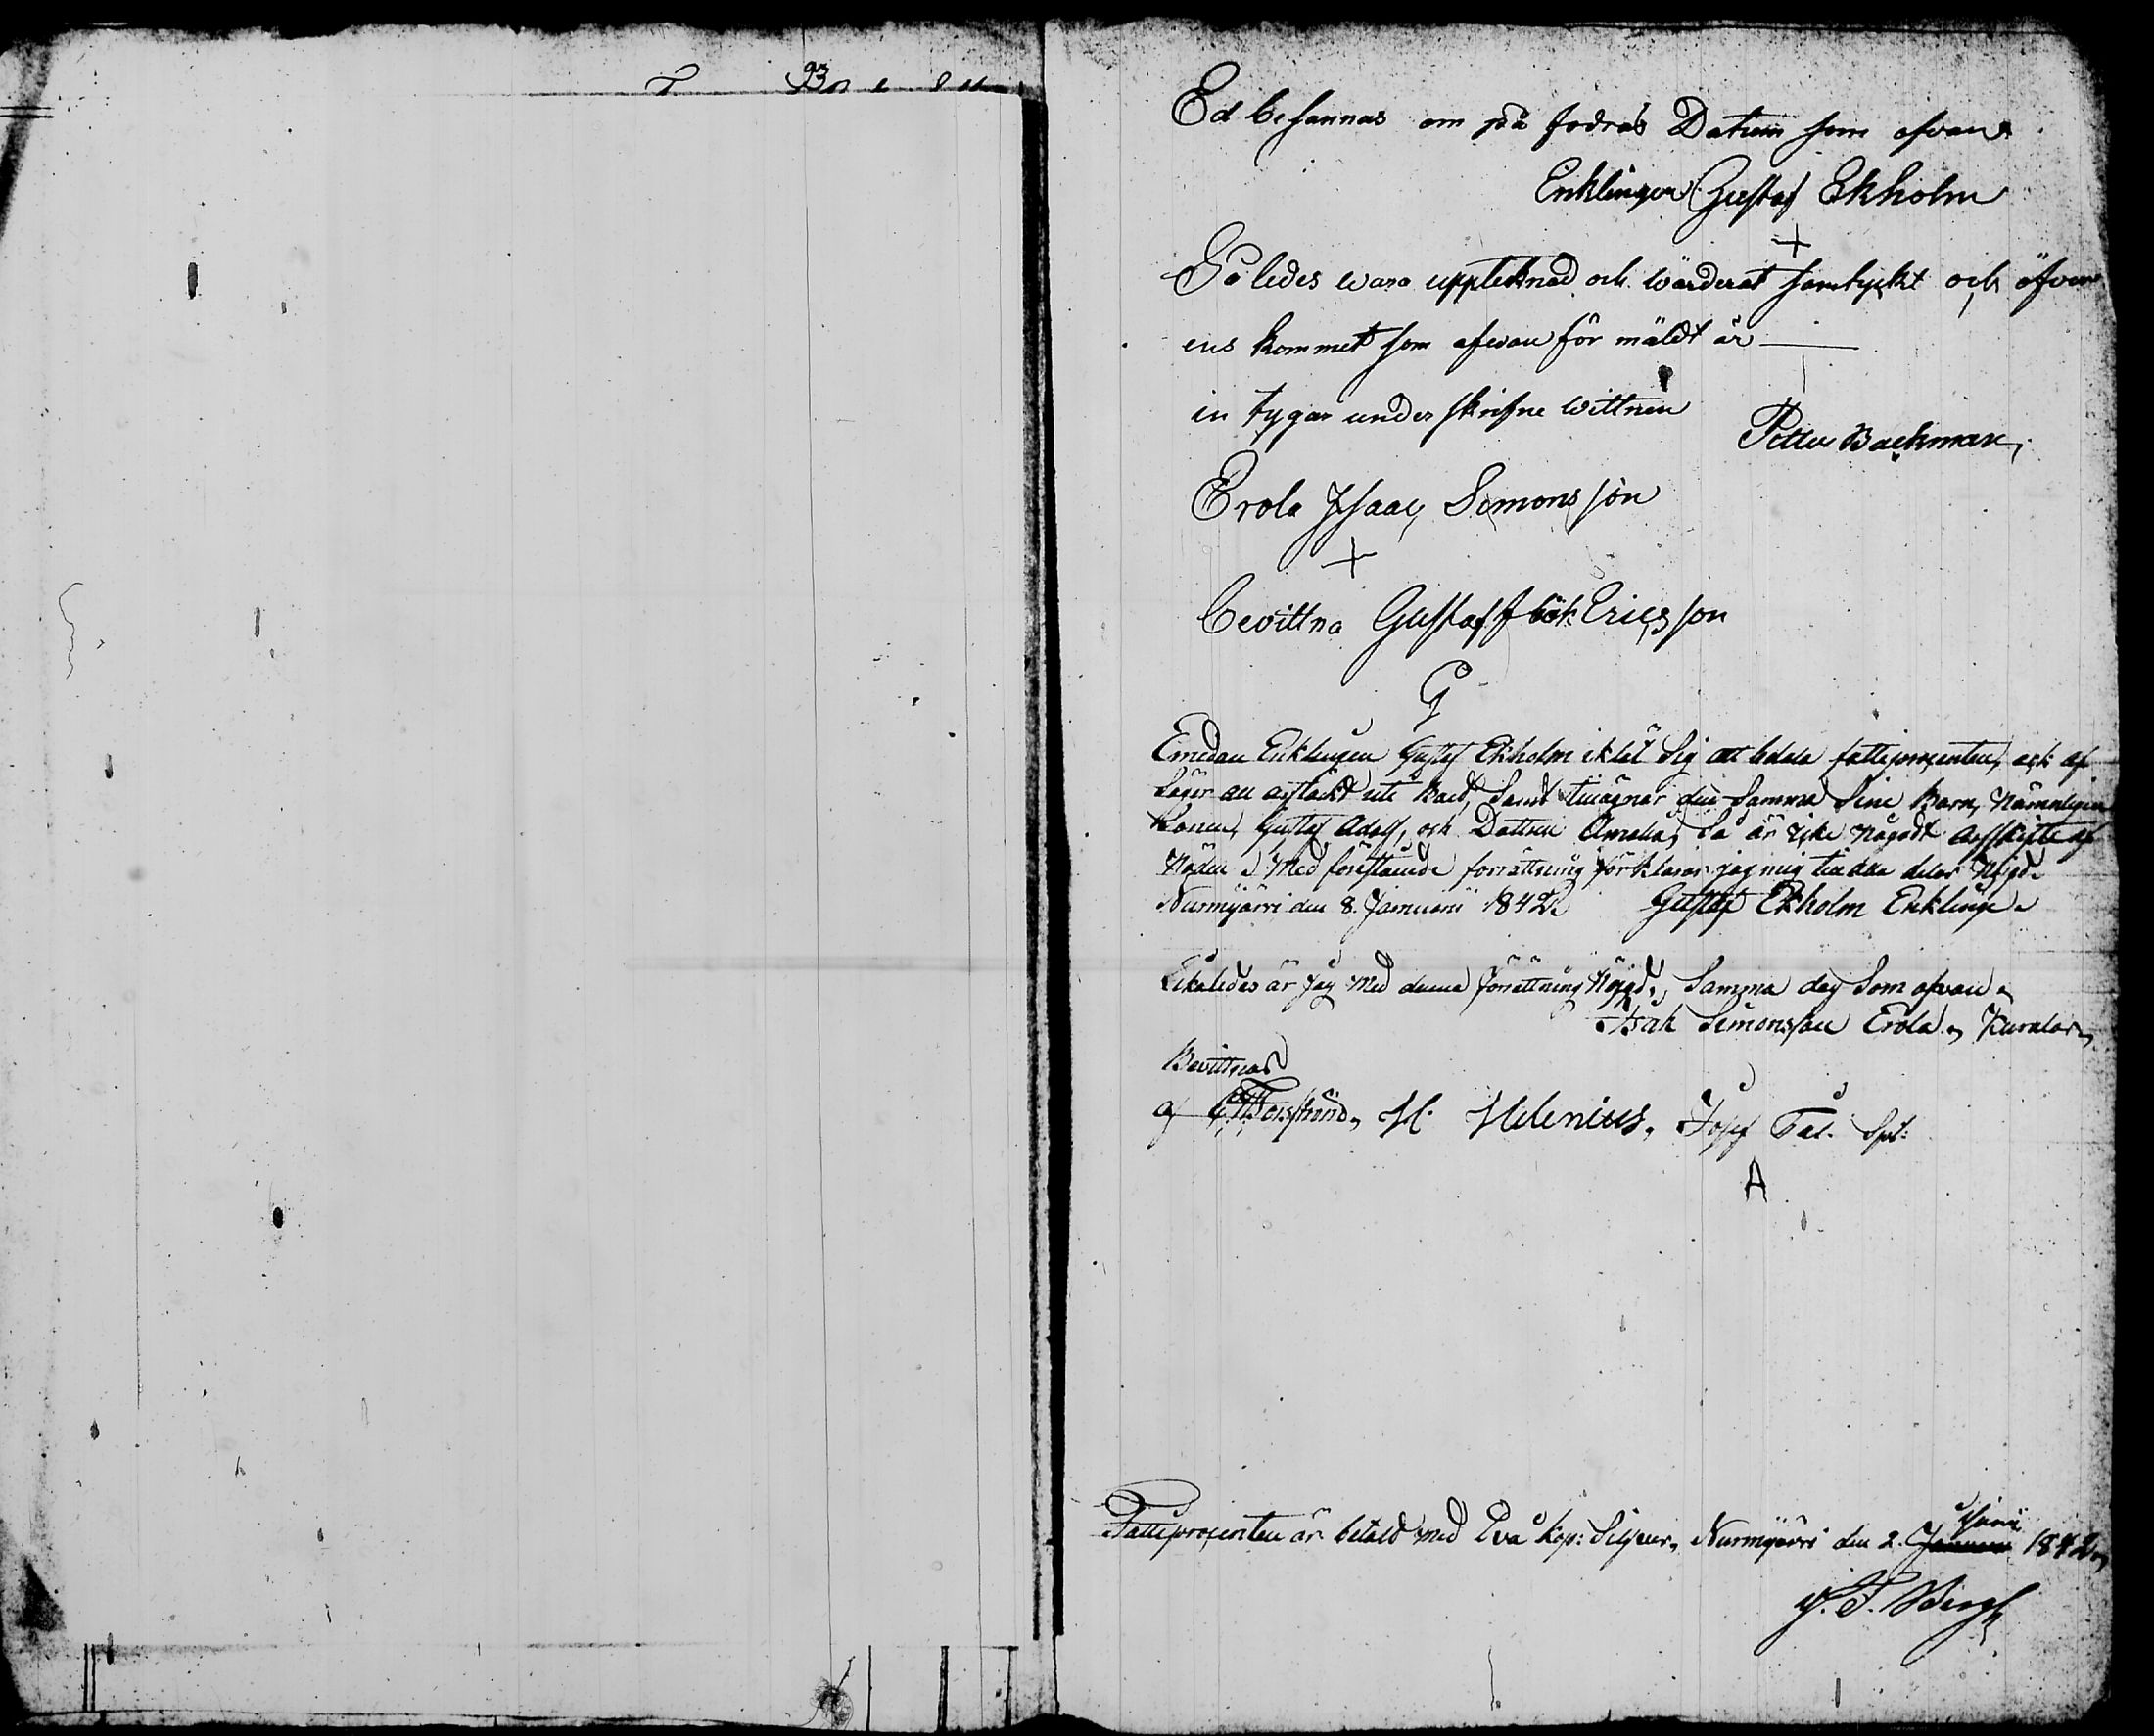 Ed besannas om så fodras Datum som ofvan
Enklingen Gustaf Ekholm
+
Så ledes wara upptecknad och wärderat samtyckt och öfver
ens kommet som ofwan för mäldt är
in tygar under skrifne wittnen
Petter Backman,
Erola Isaac Simons son
+
bevittna Gustaf Erics son
G
Emedan Enklingen Gustaf Ekholm iklät Sig att betala fattigprocenten, och af
Säger all arfsladt uti Boet, Samt tillägnar den Samma Sine Barn, Nämnligen
Sonen, Gustaf Adolf, och Dottren Amalia, Så är icke något arfskifte af
Nöden. Med förestående förrättning förklarar jag mig till alla delar Nöjd.
Nurmijärvi den 8. Januarii 1842. Gustaf Ekholm Enkling.
Likaledes är Jag Med denna Förrättning Nöjd, Samma dag Som ofvan.
Isak Simonsson Erola, Kurator,
Bevittnas
af H. Helenius, Josef Spl:
A
Fattigprocenten är betald med Två kop: Silfver, Nurmijärvi den 2. Januari Junii 1842,
J. F. Bergh